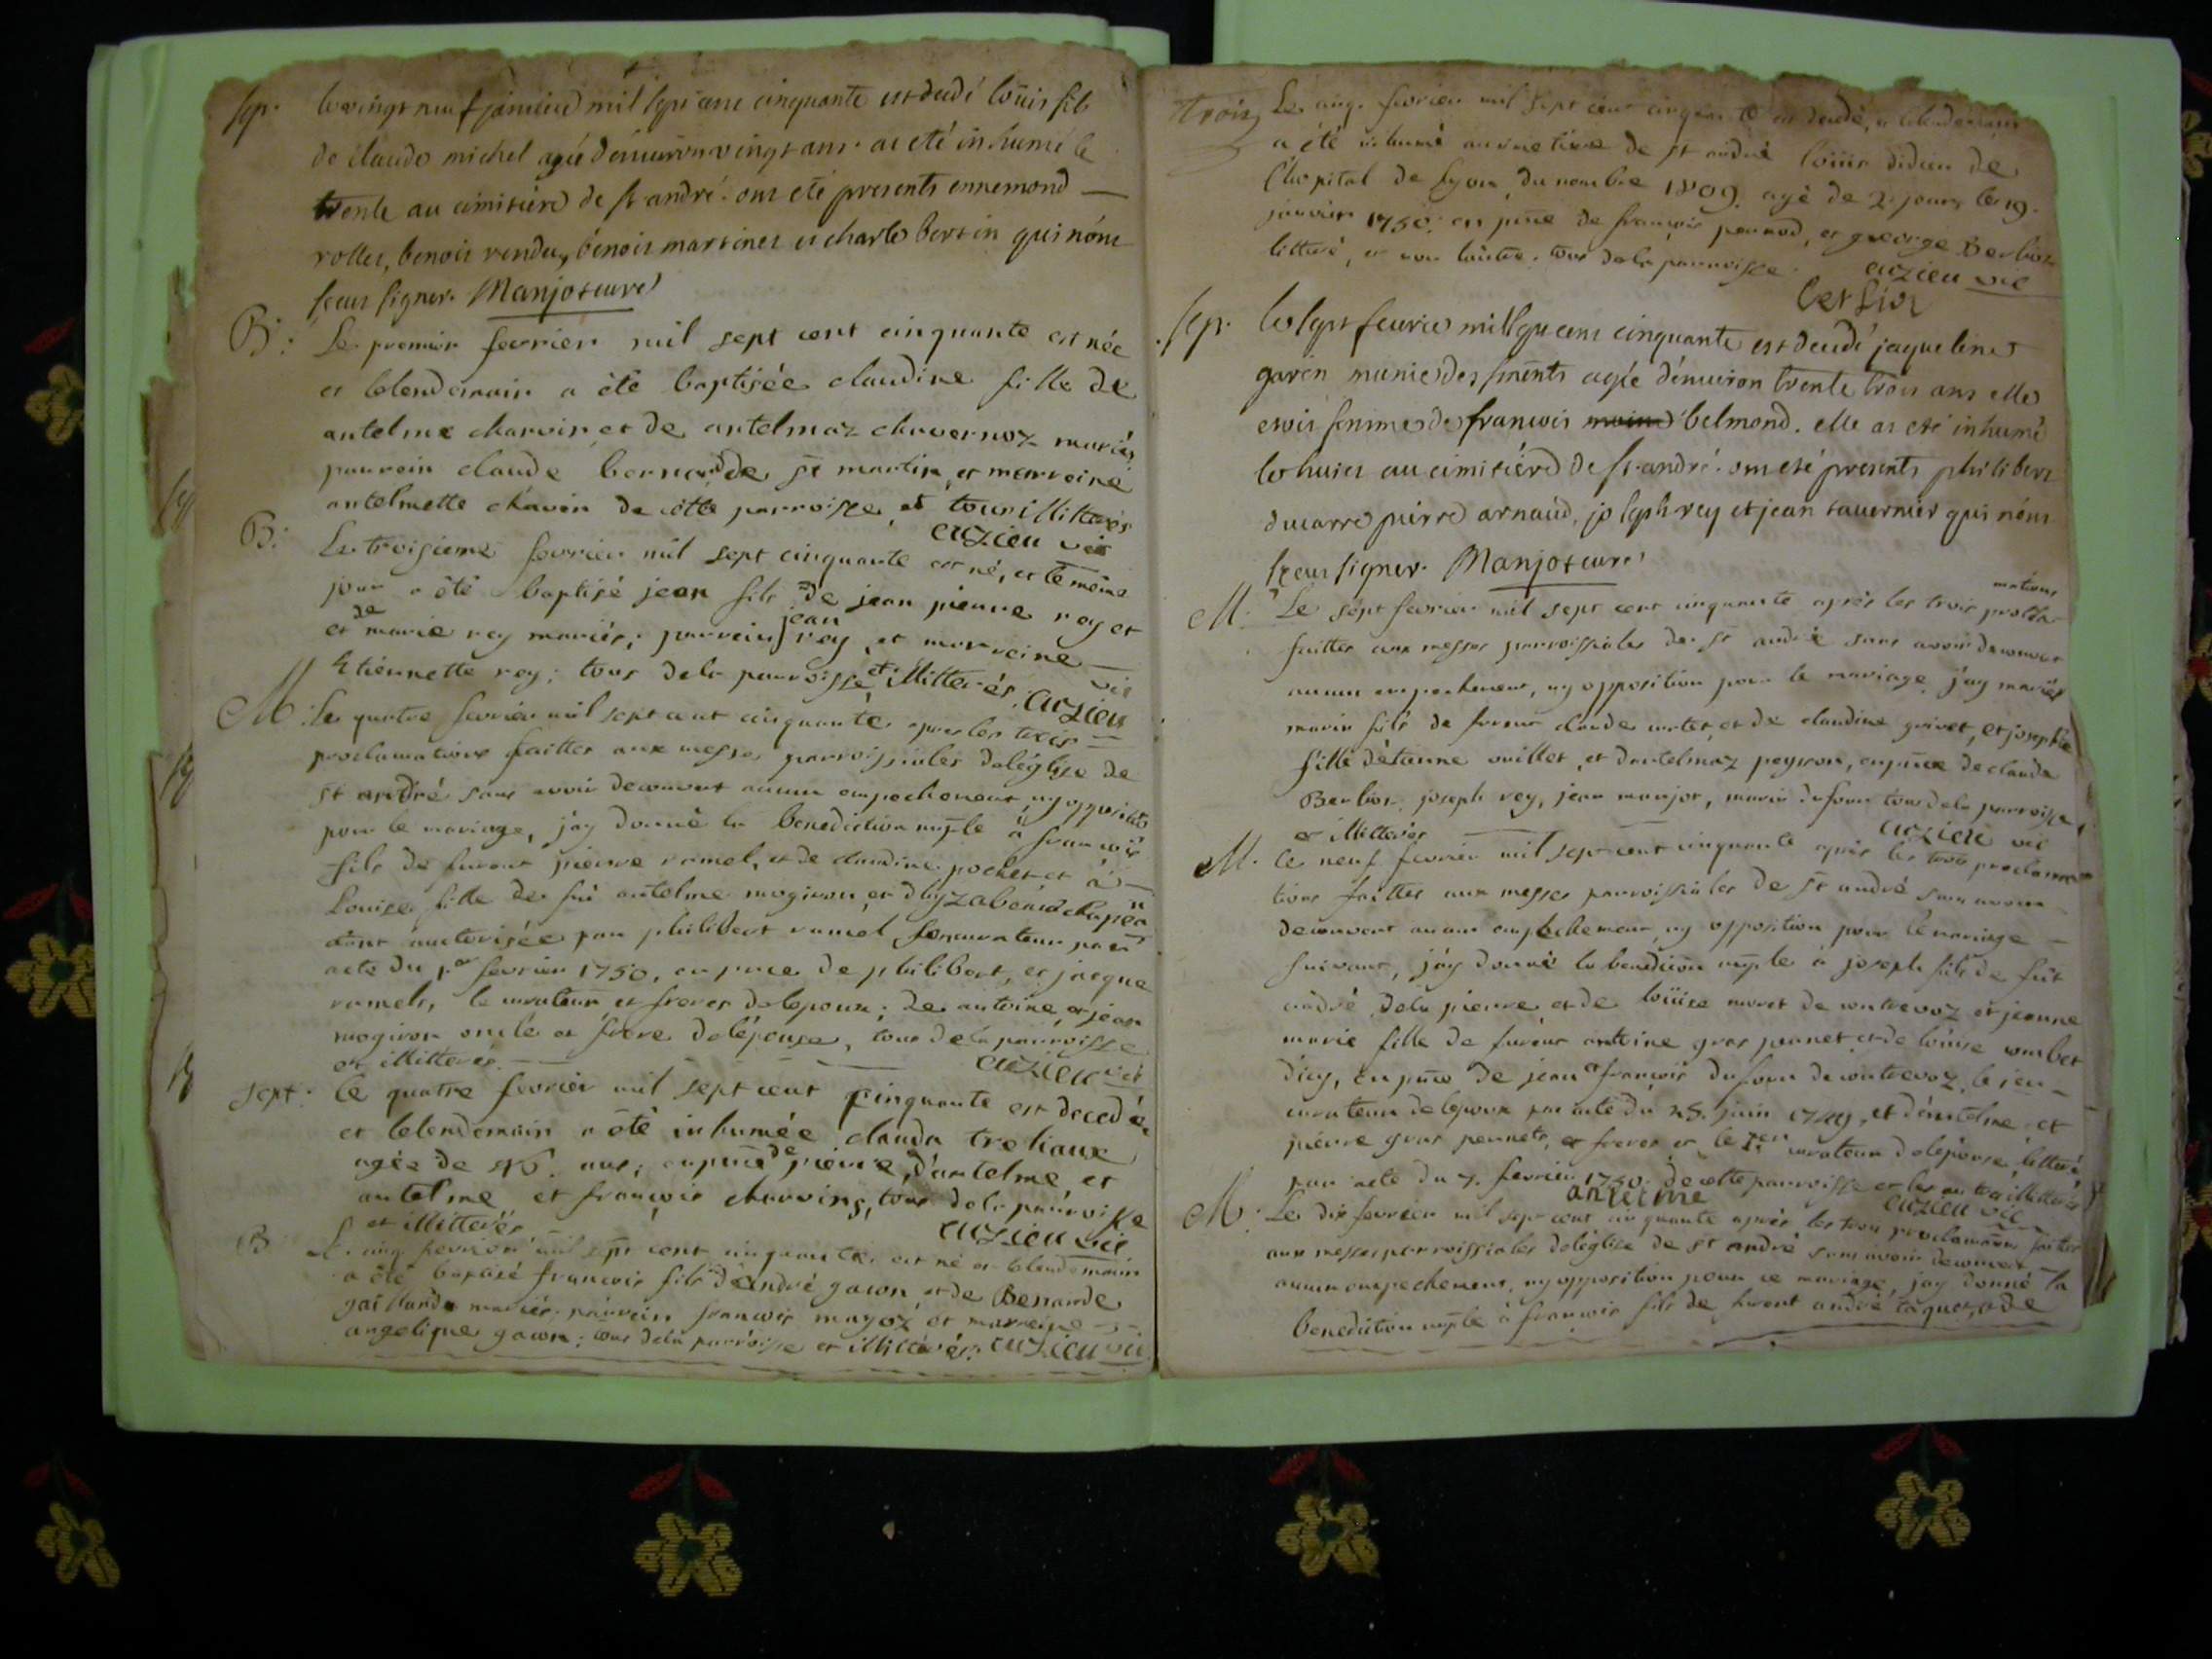 Sep. le vingt neuf janvier mil sept cens cinquante est decedé loüis fils
de claude michel agée d'environ vingt ans. at eté inhumé le
trente au cimitiere de st andré. ont eté presents ennemond —
rollet, benoit rendu, benoit martinet et charle bertin qui n'ont
sceu signer. Manjot curé
B: Le premier fevrier mil sept cent cinquante est née
et le lendemain a été baptisée claudine fille de
antelme charvin et de antelmaz chavernoz mariés
parrein claude bernard de st martin et marreine
antelmette chavin de cette parroisse et tous illitterés
cuzieu vic
B: Le troisieme fevrier mil sept cinquante est né, et le même
jour a été baptisé jean fils de jean pierre rey et
et de marie rey mariés; parrein jean rey, et marreine —
Etiennette rey; tous de la parroisse et illitterés. cuzieu vic
M: Le quatre fevrier mil sept cent cinquante apres les trois
proclamations faittes aux messes parroissiales de léglise de
st andré sans avoir decouvert aucun empechement, ny opposition
pour le mariage, j'ay donné la benediction nuple à francois
fils de furent pierre ramel, et de claudine pochet et à —
Louise fille de feû antelme mogiron, et d'
etant auctorisée par philibert ramel son curateur par
acte du 1er fevrier 1750, en pnce de philibert, et jacque
ramels, le curateur et freres de lepoux; de antoine et jean
mogiron oncle et frere de lépouse, tous de la parroisse
et illitterés. — cuzieu vic
Sept: Le quatre fevrier mil sept cent cinquante est decedée
et le lendemain a été inhumée clauda
agée de ans; en pnce de pierre, d'antelme, et
antelme et françois charvins, tous de la parroisse
et illitterés cuzieu vic
B Le cinq fevrier mil sept cent cinquante est né et le lendemain
a été baptisé francois fils d'andré gacon et de Benarde
gaillard mariés, parrein francois mayoz et marreine —
angelique gacon; tous de la parroisse et illitterés. cuzieu vic
trois Le cinq fevrier mil sept cent cinquante est decedé, et le lendemain
a été inhumé au cimetiere de st andré loüis didier de
l'hopital de Lyon, du nombre 1809. agé de 2 jours le 19.
janvier 1750. en pnce de francois pernod, et george Berlioz
litteré, et non lautre. tous de la parroisse. cuzieu vic
berlioz
Sep. le sept fevrier mil sept cens cinquante est decedé jaqueline
garin munie des sments agée d'environ trente trois ans elle
etoit femme de francois belmond. elle at eté inhumé
le huict au cimitiére de st andré. ont eté presents philibert
ducarre pierre arnaud, joseph rey et jean tavernier qui n'ont
sceu signer. Manjot curé
M: Le sept fevrier mil sept cent cinquante aprés les trois proclamations
faittes aux messes parroissiales de st andré sans avoir decouvert
aucun empechement, ny opposition pour le mariage j'ay mariés
marin fils de furent claude et de claudine grivet, et josephte
fille d'etienne ouillet, et d'antelmaz peysson, en pnce de claude
Berlioz, joseph rey, jean manjot, marin dufour tous de la parroisse
et illitterés — cuzieu vic
M. Le neuf fevrier mil sept cent cinquante aprés les trois proclama
tions faittes aux messes parroissiales de st andré sans avoir
decouvert aucun empechement, ny opposition pour le mariage —
suivant, j'ay donné la benediction nuple à joseph fils de fût
andré dela pierre, et de loüise muret de contrevoz et jeanne
marie fille de furent antoine gros peanet et de loüise
d'icy, en pnce de jean françois dufour de contrevoz le jeu —
curateur de lepoux par acte du 25. juin 1749, et d'antelme et
pierre gros pennets, et freres et le 1er curateur de lépouse, litteré,
par acte du 7. fevrier 1750. de cette parroisse et les autres illitterés
antelme cuzieu vic
M: Le dix fevrier mil sept cent cinquante aprés les trois proclamations faites
aux messes parroissiales de léglise de st andré sans avoir decouvert
aucun empechement, ny opposition pour ce mariage, j'ay donné la
benediction nuple à francois fils de furent andré taquet, et de